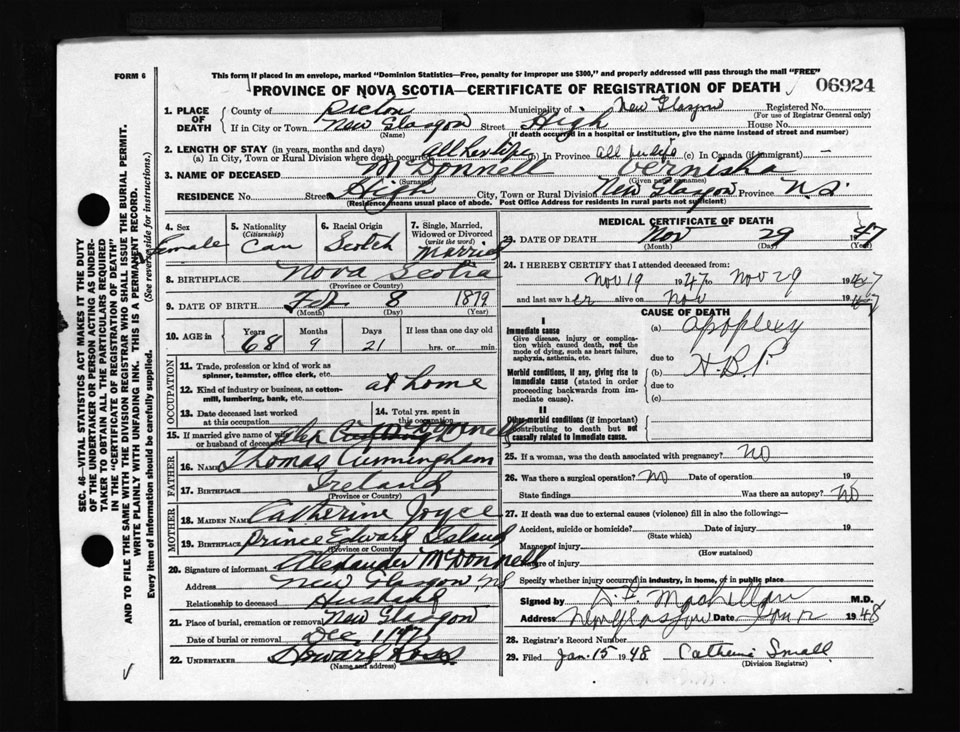 FORM 6
This form if placed in an envelope, marked "Dominion Statistics—Free, penalty for improper use $300," and properly addressed will pass through the mail "FREE"
PROVINCE OF NOVA SCOTIA—CERTIFICATE OF REGISTRATION OF DEATH 06924
1. PLACE OF DEATH County of Pictou Municipality of New Glasgow Registered No.
(For use of Registrar General only)
If in City or Town New Glasgow Street High House No.
(If death occurred in a hospital or institution, give the name instead of street and number)
2. LENGTH OF STAY (in years, months and days)
(a) In City, Town or Rural Division where death occurred all her life (b) In Province all her life (c) In Canada (if immigrant) —
3. NAME OF DECEASED McDonnell Vernisha
(Surname) (Given or names)
RESIDENCE No. Street High City, Town or Rural Division New Glasgow Province N.S.
(Residence means usual place of abode. Post Office Address for residents in rural parts not sufficient)
4. Sex 5. Nationality (Citizenship) 6. Racial Origin 7. Single, Married, Widowed or Divorced (write the word)
Female Can Scotch Married
8. BIRTHPLACE Nova Scotia
(Province or Country)
9. DATE OF BIRTH Feb 8 1879
(Month) (Day) (Year)
10. AGE in Years Months Days If less than one day old
68 9 21 hrs. or min.
OCCUPATION
11. Trade, profession or kind of work as spinner, teamster, office clerk, etc.
12. Kind of industry or business, as cotton-mill, lumbering, bank, etc. at home
13. Date deceased last worked at this occupation 14. Total yrs. spent in this occupation
15. If married give name of wife or husband of deceased Alex McDonnell
FATHER
16. Name Thomas Cunningham
17. BIRTHPLACE Ireland
(Province or Country)
MOTHER
18. MAIDEN NAME Catherine Joyce
19. BIRTHPLACE Prince Edward Island
(Province or Country)
20. Signature of informant Alexander McDonnell
Address New Glasgow, NS
Relationship to deceased Husband
21. Place of burial, cremation or removal New Glasgow
Date of burial or removal Dec 1
22. UNDERTAKER Howard Ross
(Name and address)
MEDICAL CERTIFICATE OF DEATH
23. DATE OF DEATH Nov 29 1947
(Month) (Day) (Year)
24. I HEREBY CERTIFY that I attended deceased from:
Nov 19 1947 to Nov 29 1947
and last saw her alive on Nov 1947
CAUSE OF DEATH
I
Immediate cause
Give disease, injury or complication which caused death, not the mode of dying, such as heart failure, asphyxia, asthenia, etc.
(a) apoplexy
due to
Morbid conditions, if any, giving rise to immediate cause (stated in order proceeding backwards from immediate cause).
(b) H.B.P.
due to
(c)
II
Other morbid conditions (if important) contributing to death but not causally related to immediate cause.
25. If a woman, was the death associated with pregnancy? NO
26. Was there a surgical operation? NO Date of operation 19
State findings Was there an autopsy? NO
27. If death was due to external causes (violence) fill in also the following:—
Accident, suicide or homicide? Date of injury 19
(State which)
Manner of injury
(How sustained)
Nature of injury
Specify whether injury occurred in industry, in home, or in public place
Signed by M.D.
Address New Glasgow Date Jan 12 1948
28. Registrar's Record Number
29. Filed Jan. 15 1948 Catherine Small
(Division Registrar)
SEC. 46—VITAL STATISTICS ACT MAKES IT THE DUTY
OF THE UNDERTAKER OR PERSON ACTING AS UNDER-
TAKER TO OBTAIN ALL THE PARTICULARS REQUIRED
IN THE "CERTIFICATE OF REGISTRATION OF DEATH"
AND TO FILE THE SAME WITH THE DIVISION REGISTRAR WHO SHALL ISSUE THE BURIAL PERMIT.
WRITE PLAINLY WITH UNFADING INK. THIS IS A PERMANENT RECORD.
Every item of information should be carefully supplied. (See reverse side for instructions.)